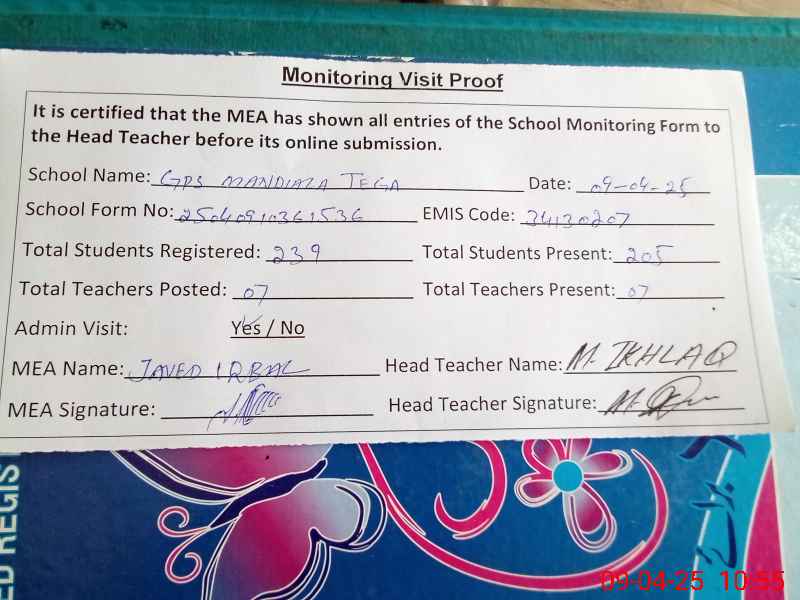 Monitoring Visit Proof
It is certified that the MEA has shown all entries of the School Monitoring Form to
the Head Teacher before its online submission.
School Name: GPS MANDIALA TEGA Date: 09-04-25
School Form No: 25040910361536 EMIS Code: 34130207
Total Students Registered: 239 Total Students Present: 205
Total Teachers Posted: 07 Total Teachers Present: 07
Admin Visit: Yes / No
MEA Name: JAVED IQBAL Head Teacher Name: M. IKHLAQ
MEA Signature: Head Teacher Signature:
ED REGIS
09-04-25 10:55